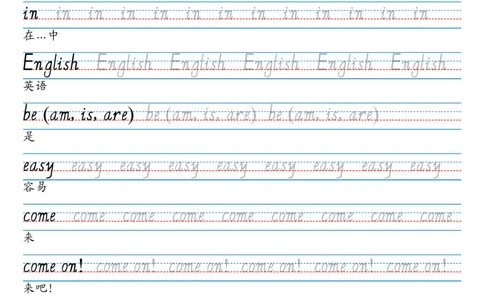 in in in in in in in in in in in in in
在…中
English English English English English English
英语
be (am, is, are) be (am, is, are) be (am, is, are)
是
easy easy easy easy easy easy easy easy easy
容易
come come come come come come come come come
来
come on! come on! come on! come on! come on! come on!
来吧!